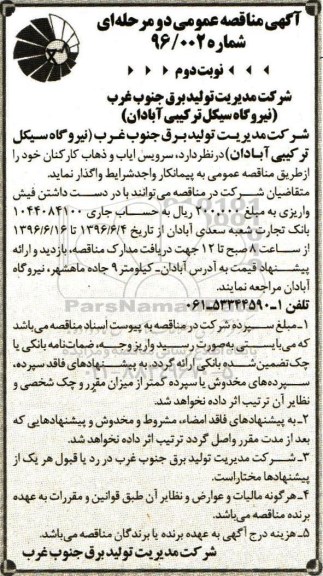 آگهی مناقصه عمومی دو مرحله‌ای
شماره ۹۶/۰۰۲
نوبت دوم
شرکت مدیریت تولید برق جنوب غرب
(نیروگاه سیکل ترکیبی آبادان)
شرکت مدیریت تولید برق جنوب غرب (نیروگاه سیکل
ترکیبی آبادان) در نظر دارد، سرویس ایاب و ذهاب کارکنان خود را
از طریق مناقصه عمومی به پیمانکار واجد شرایط واگذار نماید.
متقاضیان شرکت در مناقصه می‌توانند با در دست داشتن فیش
واریزی به مبلغ ۲۰۰،۰۰۰ ریال به حساب جاری ۱۰۴۴۰۸۴۱۰۰
بانک تجارت شعبه سعدی آبادان از تاریخ ۱۳۹۶/۶/۴ تا ۱۳۹۶/۶/۱۶
از ساعت ۸ صبح تا ۱۲ جهت دریافت مدارک مناقصه، بازدید و ارائه
پیشنهاد قیمت به آدرس آبادان- کیلومتر ۹ جاده ماهشهر، نیروگاه
آبادان مراجعه نمایند.
تلفن ۱-۵۳۳۴۴۵۹۰-۰۶۱
۱-مبلغ سپرده شرکت در مناقصه به پیوست اسناد مناقصه می‌باشد
که می‌بایستی به‌صورت رسید واریز وجه، ضمانت‌نامه بانکی یا
چک تضمین‌شده بانکی ارائه گردد به پیشنهادهای فاقد سپرده،
سپرده‌های مخدوش یا سپرده کمتر از میزان مقرر و چک شخصی و
نظایر آن ترتیب اثر داده نخواهد شد.
۲-به پیشنهادهای فاقد امضاء، مشروط و مخدوش و پیشنهادهایی که
بعد از مدت مقرر واصل گردد ترتیب اثر داده نخواهد شد.
۳-شرکت مدیریت تولید برق جنوب غرب در رد یا قبول هر یک از
پیشنهادها مختار است.
۴-هرگونه مالیات و عوارض و نظایر آن طبق قوانین و مقررات به عهده
برنده می‌باشد.
۵-هزینه درج آگهی به عهده برنده یا برندگان مناقصه می‌باشد.
شرکت مدیریت تولید برق جنوب غرب